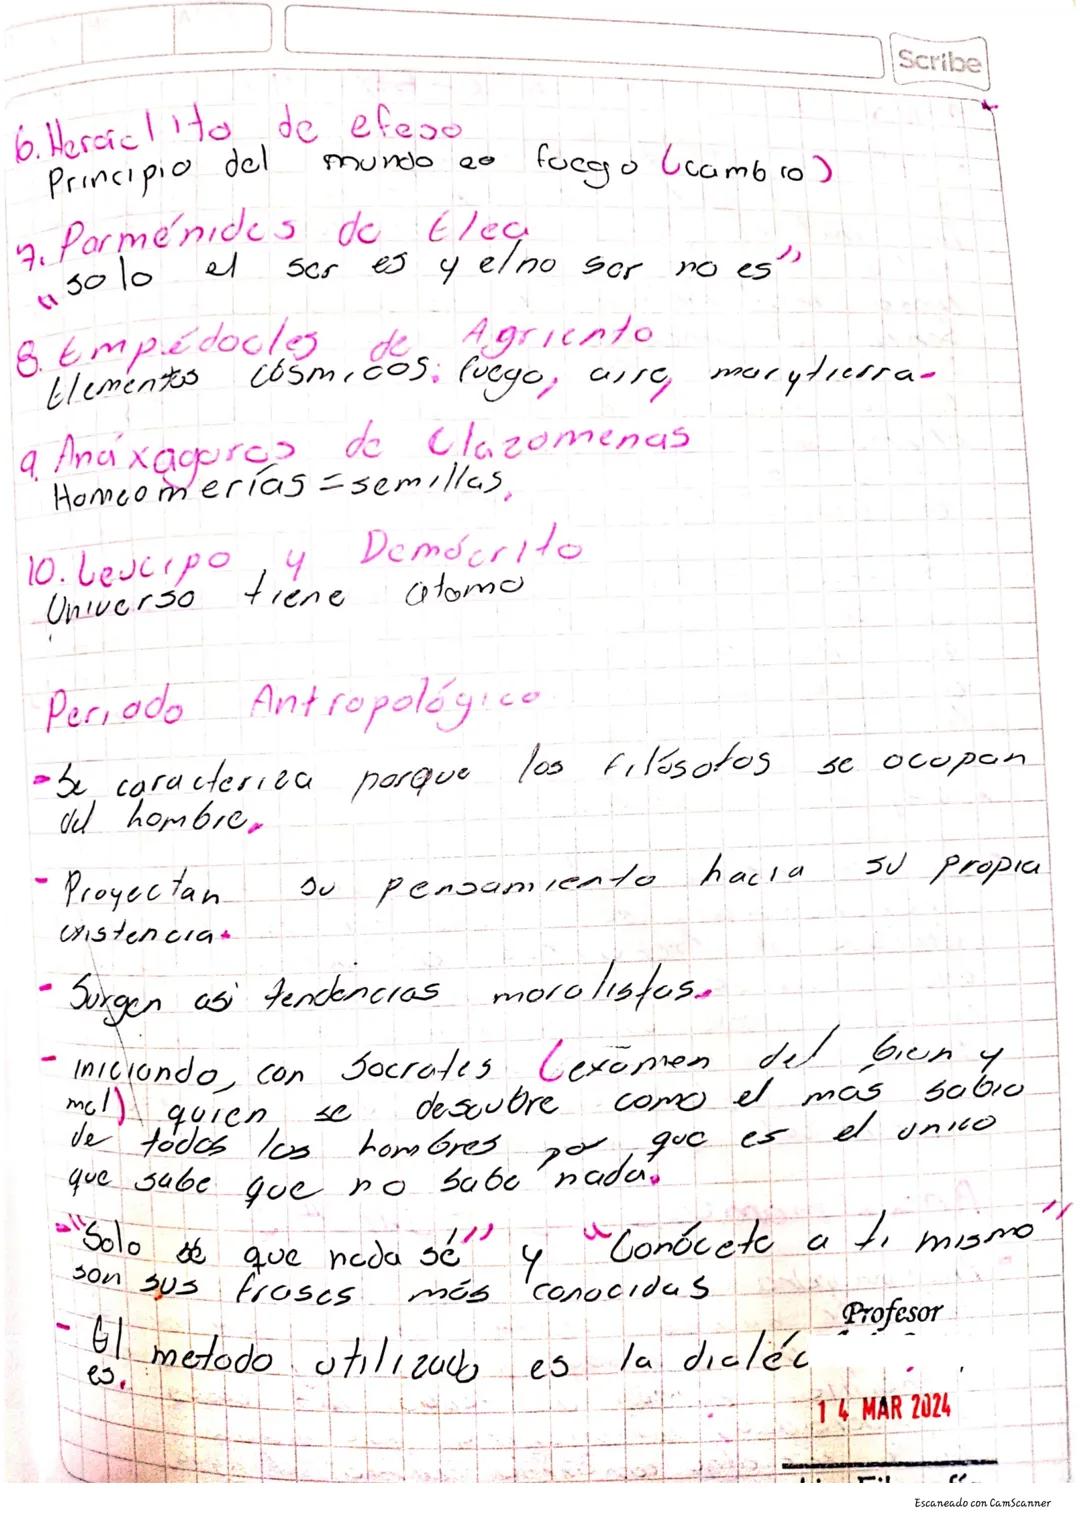 Scribe
6. Heráclito de efeso
Principio del mundo es fuego (cambio)
7. Parménides de Elea
"solo el ser es y el no ser no es"
8. Empédocles de Agriento
Elementos cósmicos: fuego, aire, mar y tierra.
9. Anáxagoras de Clazomenas
Homeomerías = semillas.
10. Leucipo y Demócrito
Universo tiene atomo
Periodo Antropológico
- Se caracteriza porque los filósofos se ocupan
del hombre.
- Proyectan su pensamiento hacia su propia
existencia.
- Surgen asi tendencias moralistas.
- iniciando, con Socrates (exámen del bien y
mal) quien se descubre como el más sabio
de todos los hombres por que es el unico
que sabe que no sabe nada.
- "Solo sé que nada sé" y "Conócete a ti mismo"
son sus frases más conocidas
- El metodo utilizado es la dialéc
es.
Profesor
14 MAR 2024
Escaneado con CamScanner